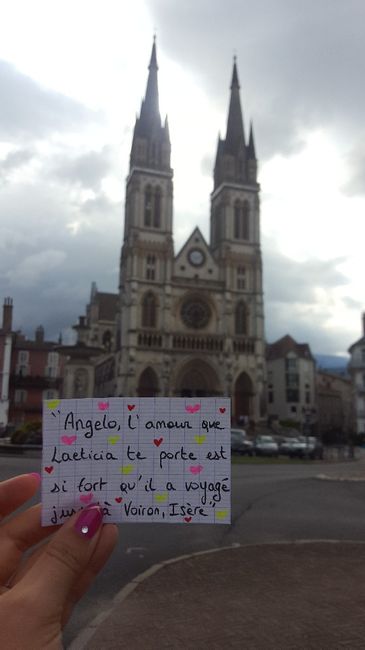 "Angelo, l'amour que
Laeticia te porte est
si fort qu'il a voyagé
jusqu'à Voiron, Isère"